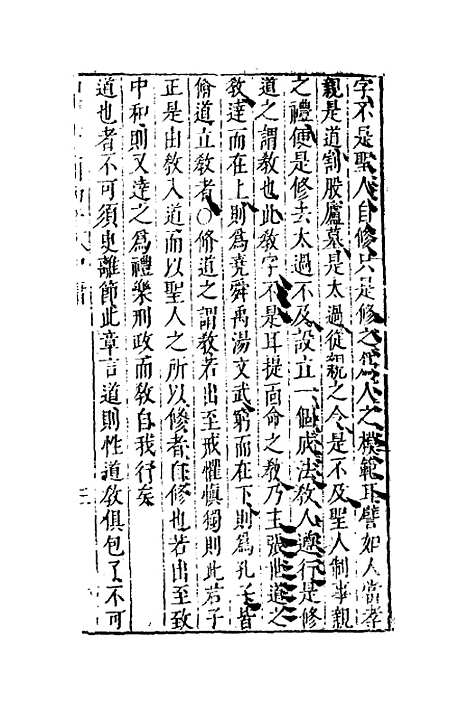 字不是聖人自修只是修之爲人之模範耳譬如人當孝
親是道割股廬墓是太過從親之令是不及聖人制事親
之禮便是修去太過不及設立一個成法教人遵行是修
道之謂教也此教字不是耳提面命之教乃主張世道之
教達而在上則為堯舜禹湯文武窮而在下則為孔子皆
脩道立教者〇脩道之謂教若出至戒懼慎獨則此君子
正是由教入道而以聖人之所以修者自修也若出至致
中和則又達之為禮樂刑政而教自我行矣
道也者不可須臾離節此章言道則性道教俱包了不可
三